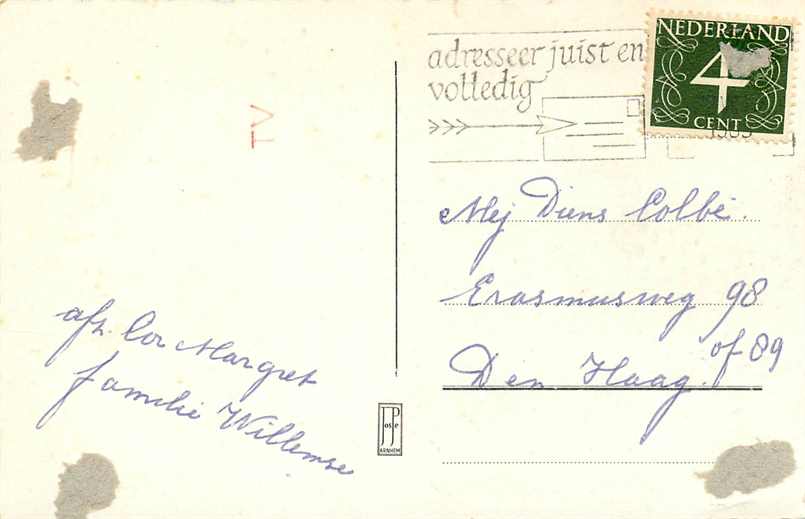 adresseer juist en
volledig
NEDERLAND
4
CENT
TV
Mej Diens Colbé.
Erasmusweg 98
of 89
Den Haag.
afz. Cor Margret
familie Willemse
JosPe
ARNHEM